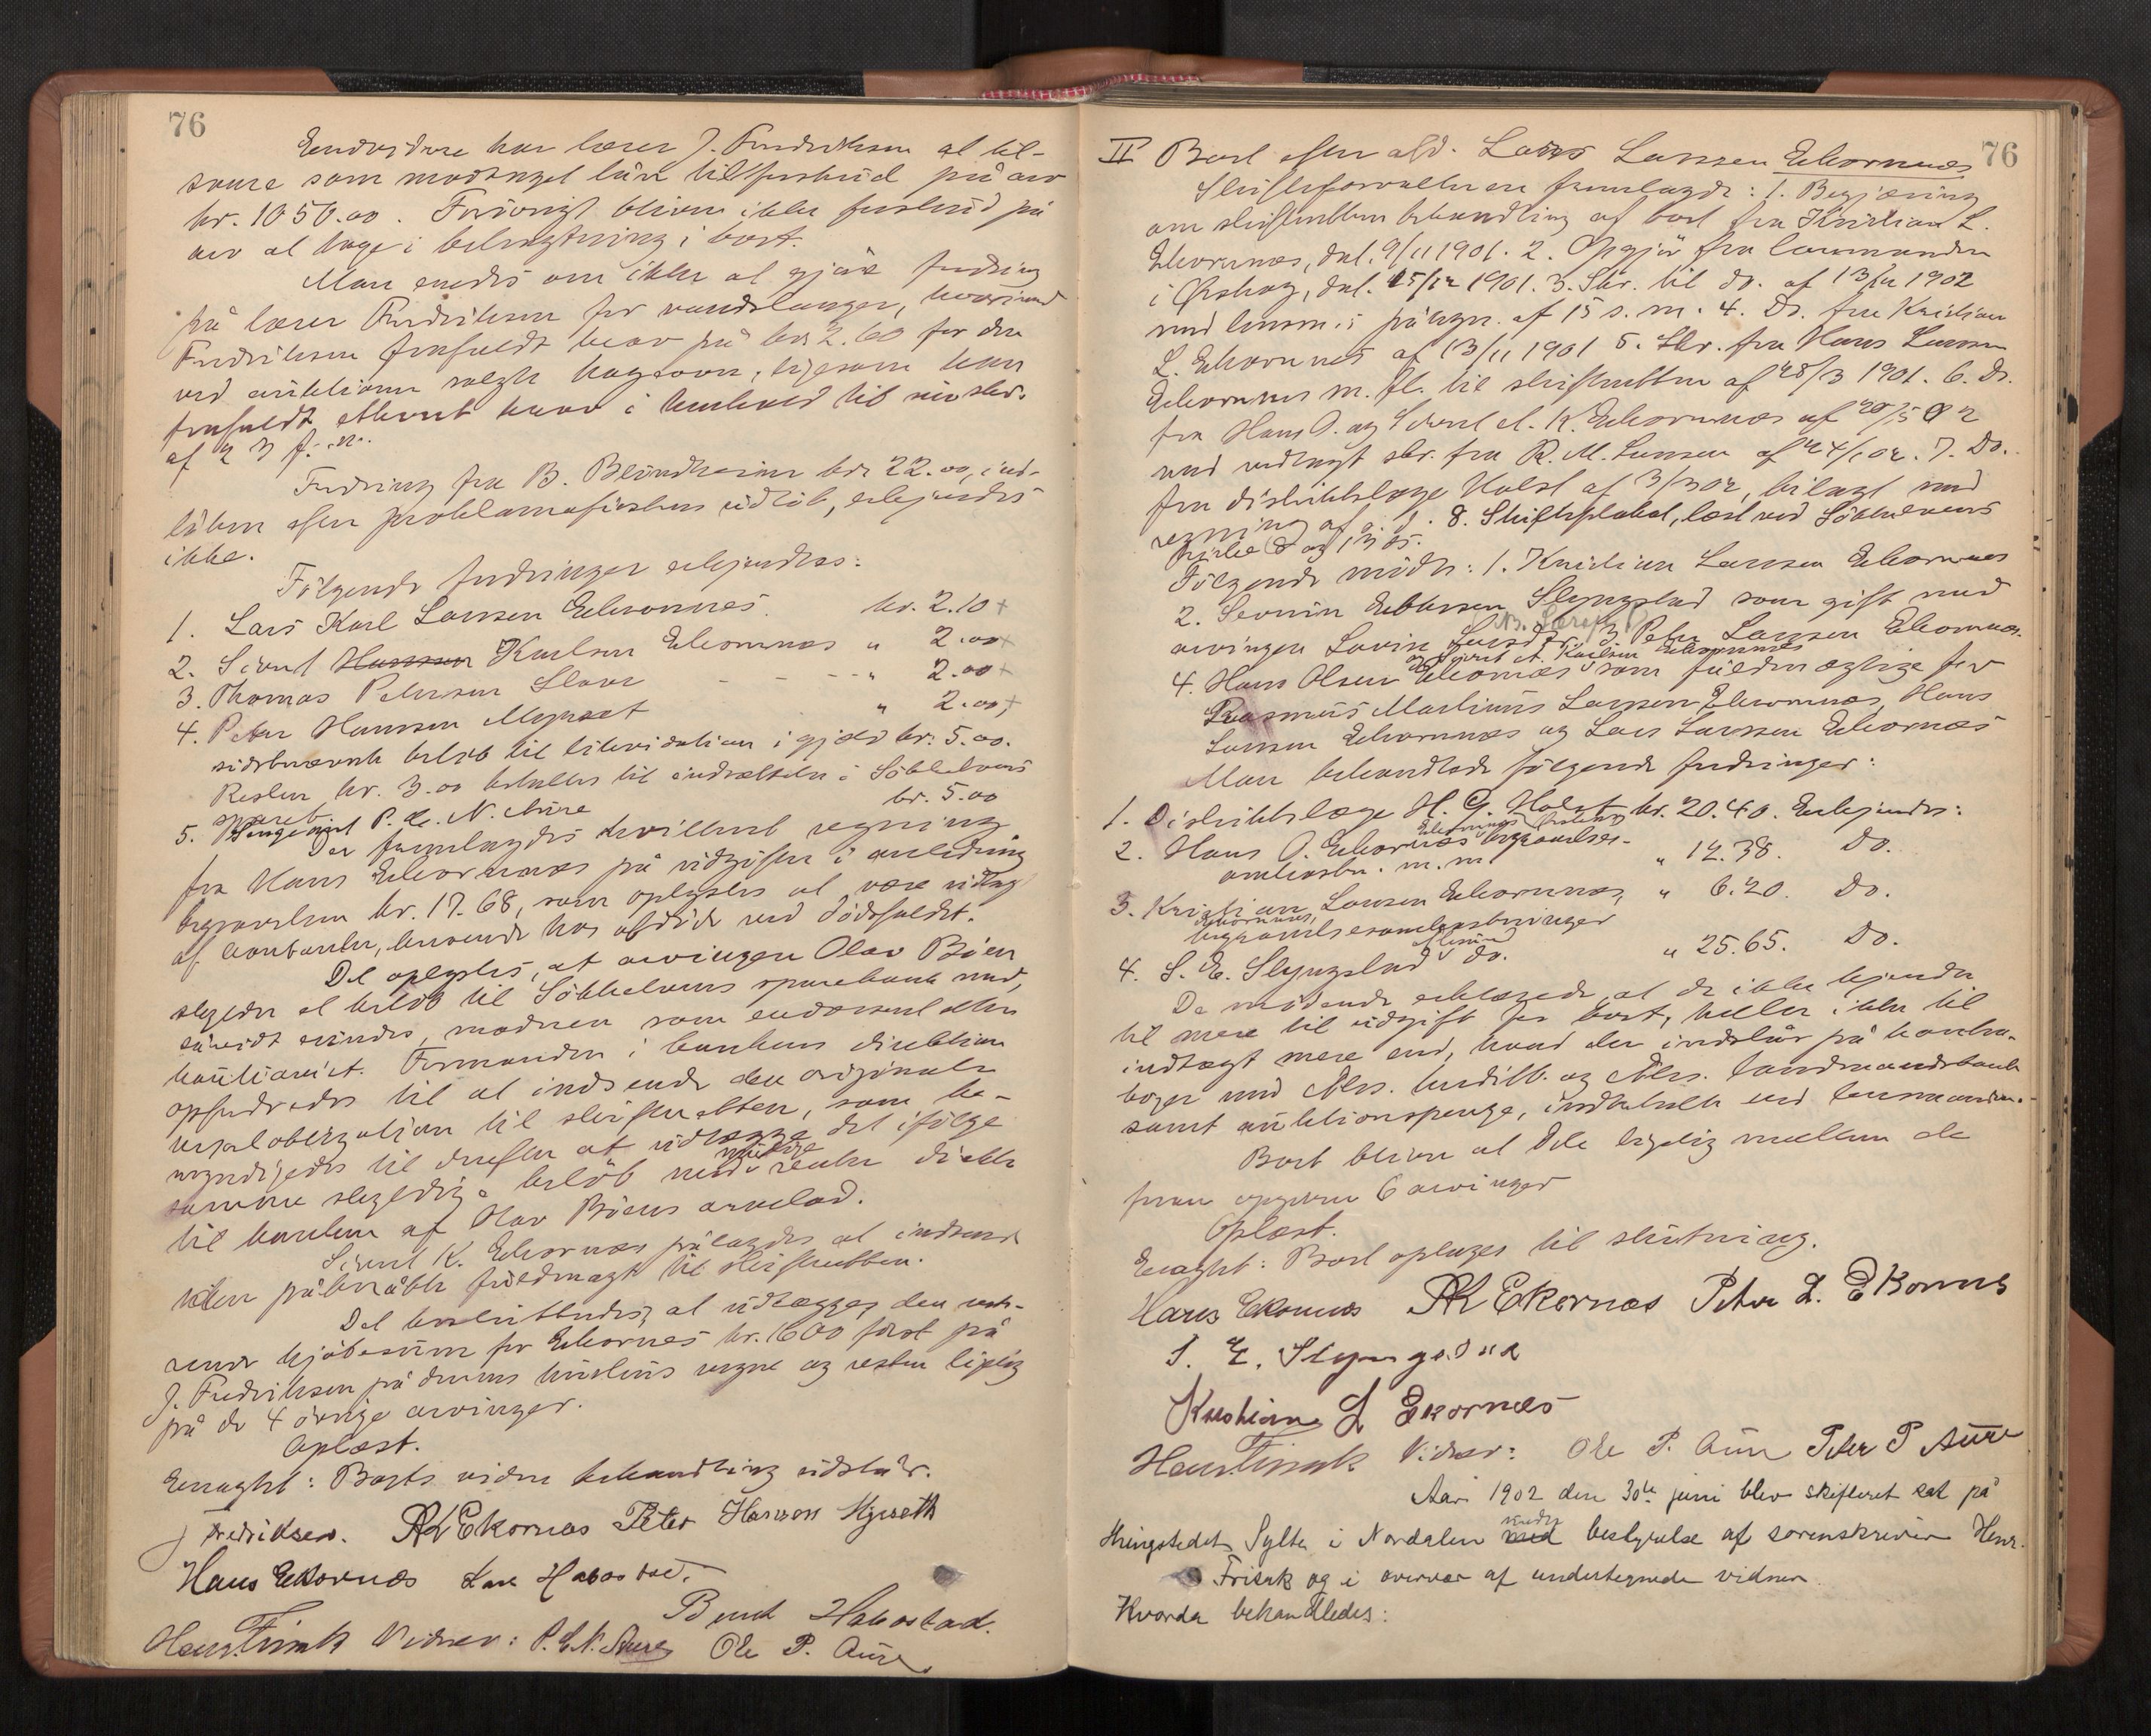 76
Endvidere har lærer J. Fredriksen at til-
svare som modtaget lån tilforskud på arv
kr. 1050.00. Forövrigt bliver ikke forskud på
arv at tage i betragtning i boet.
Man enedes om ikke at gjöre fordring
på lærer Fredriksen for vandslanger, hvorimod
Fredriksen frafaldt krav på kr 2.60 for den
ved auktionen solgte kogeovn, ligesom han
frafaldt ethvert krav i henhold til
af 23 f. m.
Fordring fra B. Blindheim kr 22.00, ind-
löben efter proklamafristens udlöb, erkjendtes
ikke.
Fölgende fordringer erkjendtes:
1. Lars Karl Larssen Ekornnes. kr. 2.10 +
2. Sivert Hanssen Karlsen Ekornnes " 2.00 +
3. Thomas Petersen - - - " 2.00 +
4. Peter Hanssen Myrset " 2.00 +
sidstnævnte belöb til likvidation i gjæld kr. 5.00.
Resten kr. 3.00 beholdes til indsættelse i Sökkelvens
spareb.
5. P. E. N. Aure kr. 5.00
Der fremlagdes kvitteret regning
fra Hans Ekornnæs på udgifter i anledning
begravelsen kr. 17.68, som oplystes at være udlagt
af kontanter, beroende hos afdöde ved dödsfaldet.
Det oplystes, at arvingen Olav Böen
skylder et belöb til Sökkelvens sparebank med,
såvidt erindres, moderen som endossent eller
kautionist. Formanden i bankens direktion
opfordredes til at indsende den originale
vexelobligation til skifteretten, som be-
myndigedes til derefter at udlægge det ifölge
samme skyldige belöb med mulige renter direkte
til banken af Olav Böens arvelod.
Sivert K. Ekornæs pålagdes at indsende
uden påberåbte fuldmagt til skifteretten.
Det besluttedes, at udlægges den reste-
rende kjöbesum for Ekornes kr. 1600 först på
J. Fredriksen på dennes hustrus vegne og resten ligelig
på de 4 övrige arvinger.
Oplæst.
Eragtet: Boets videre behandling udstår.
J Fredriksen. RK Ekornæs Peter Hansson Myrseth
Hans Ekornæs Lars Habostad.
Bernt Habostad.
Henr. Friesak Vidner: P. E. N. Aure Ole P. Aure
76
II Boet efter afd. Lars Larssen Ekornnæs
Skifteforvalteren fremlagde: 1. Begjæring
om skifterettens behandling af boet fra Kristian L.
Ekornnæs, dat. 9/11 1901. 2. Opgjör fra lensmanden
i Ørskog, dat. 15/12 1901. 3. Skr. til do. af 13/ 1902
med lensm.s påtegn. af 15 s. m. 4. Do. fra Kristian
L. Ekornnes af 13/11 1901 5. Skr. fra Hans Larssen
Ekornnes m. fl. til skifteretten af 28/3 1901. 6. Do.
fra Hans O. og Sivert A. K. Ekornnæs af 20/5 02
med vedlagt skr. fra R. M. Larssen af 24/1 02. 7. Do.
fra distriktslæge Holst af 3/3 02, bilagt med
regning af s. d. 8. Skifteplakat, læst ved Sökkelvens
kirke
Fölgende mödte: 1. Kristian Larssen Ekornnæs
2. Severin Slyngstad som gift med
arvingen Lovise Larsdtr. 3. Peter Larssen Ekornnæs.
4. Hans Olsen Ekornnæs og Sivert A. Karlsen Ekornnæs som fuldmægtige for
Rasmus Martinus Larssen Ekornnæs, Hans
Larssen Ekornnæs og Lars Larssen Ekornæs
Man behandlede fölgende fordringer:
1. Distriktslæge H. G. Holst kr. 20.40. Erkjendes:
2. Hans O. Ekornæs begravelses-
omkostn. m. m. " 12.38. Do.
3. Kristian Larssen Ekornnæs, " 6.20. Do.
begravelsesomkostninger
4. S. E. Slyngstad do. " 25.65. Do.
De mödende erklærede, at de ikke kjender
til mere til udgift for boet, heller ikke til
indtægt mere end, hvad der indestår på kontra-
böger med Ales. kreditb. og Ales. landmandsbank
samt auktionspenge, indbetalte ved lensmanden.
Boet bliver at dele ligelig mellem de
foran opgivne 6 arvinger
Oplæst.
Eragtet: Boet optages til slutning.
Hans Ekornes RK Ekornæs Peter L. Ekornes
S. E. Slyngstad
Kristian L Ekornæs
Henr. Friesak Vidner: Ole P. Aure Peter P Aure
Aar 1902 den 30te juni blev skifteret sat på
thingstedet Sylte i Nordalen med under bestyrelse af sorenskriver Henr.
Friesak og i overvær af undertegnede vidner.
Hvorda behandledes: